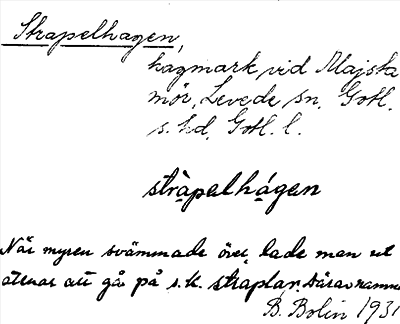 Strapelhagen,
hagmark vid Majsta
mör, Levede sn. Gotl.
s. hd, Gotl. l.
stràpelhágen
När myren svämmade över, lade man ut
att gå på s.k. straplar. Därav namne
B. Bolin 1931